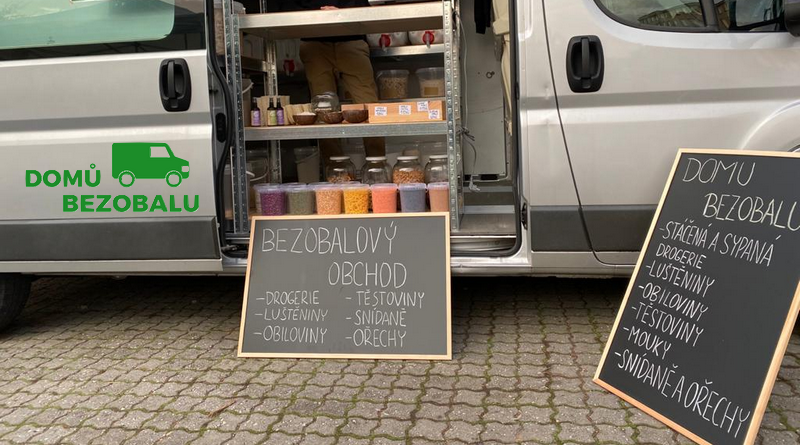 DOMŮ
BEZOBALU
BEZOBALOVÝ
OBCHOD
-DROGERIE
-LUŠTĚNINY
-OBILOVINY
-TĚSTOVINY
-SNÍDANĚ
-OŘECHY
DOMU
BEZOBALU
-STÁČENÁ A SYPANÁ
DROGERIE
-LUŠTĚNINY
-OBILOVINY
-TĚSTOVINY
-MOUKY
-SNÍDANĚ A OŘECHY